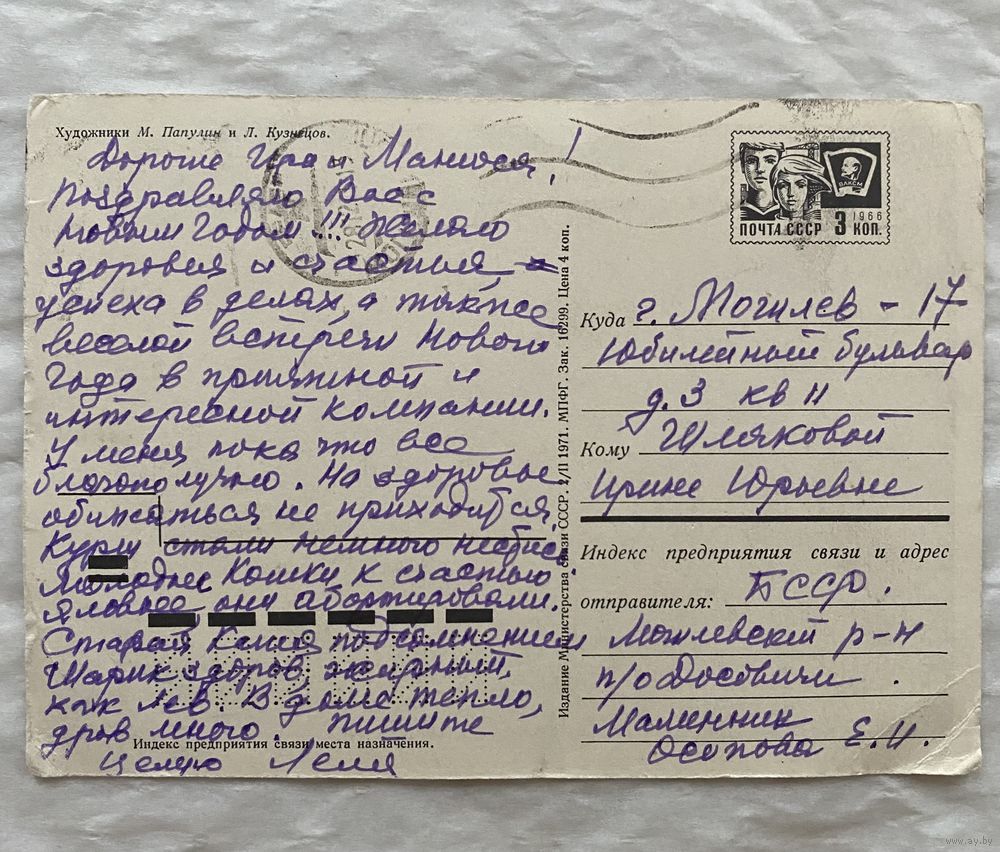 Художники М. Папулин и Л. Кузнецов.
Дорогие Ира и Манюся!
Поздравляю Вас с
Новым Годом!!! Желаю
здоровия и счастия,
успеха в делах, а также
веселой встречи Нового
Года в приятной и
интересной компании.
У меня пока что все
благополучно. На здоровье
обижаться не приходится.
Куры стали немного нестись
Молодые Кошки к счастью
яловые, они абортировали.
Старая Кения под сомнением
Шарик здоров, жирный,
как лев. В доме тепло,
дров много. Пишите
Индекс предприятия связи места назначения.
Целую Леля
Издание Министерства связи СССР. 2/II 1971. МПФГ. Зак. 16299. Цена 4 коп.
ВЛКСМ
1966
ПОЧТА СССР 3 КОП.
Куда г. Могилев - 17
Юбилейный бульвар
д. 3 кв 11
Кому Шляковой
Ирине Юрьевне
Индекс предприятия связи и адрес
отправителя: БССР.
Могилевский р-н
п/о Досовичи.
Малинник
Осипова Е. И.
www.ay.by